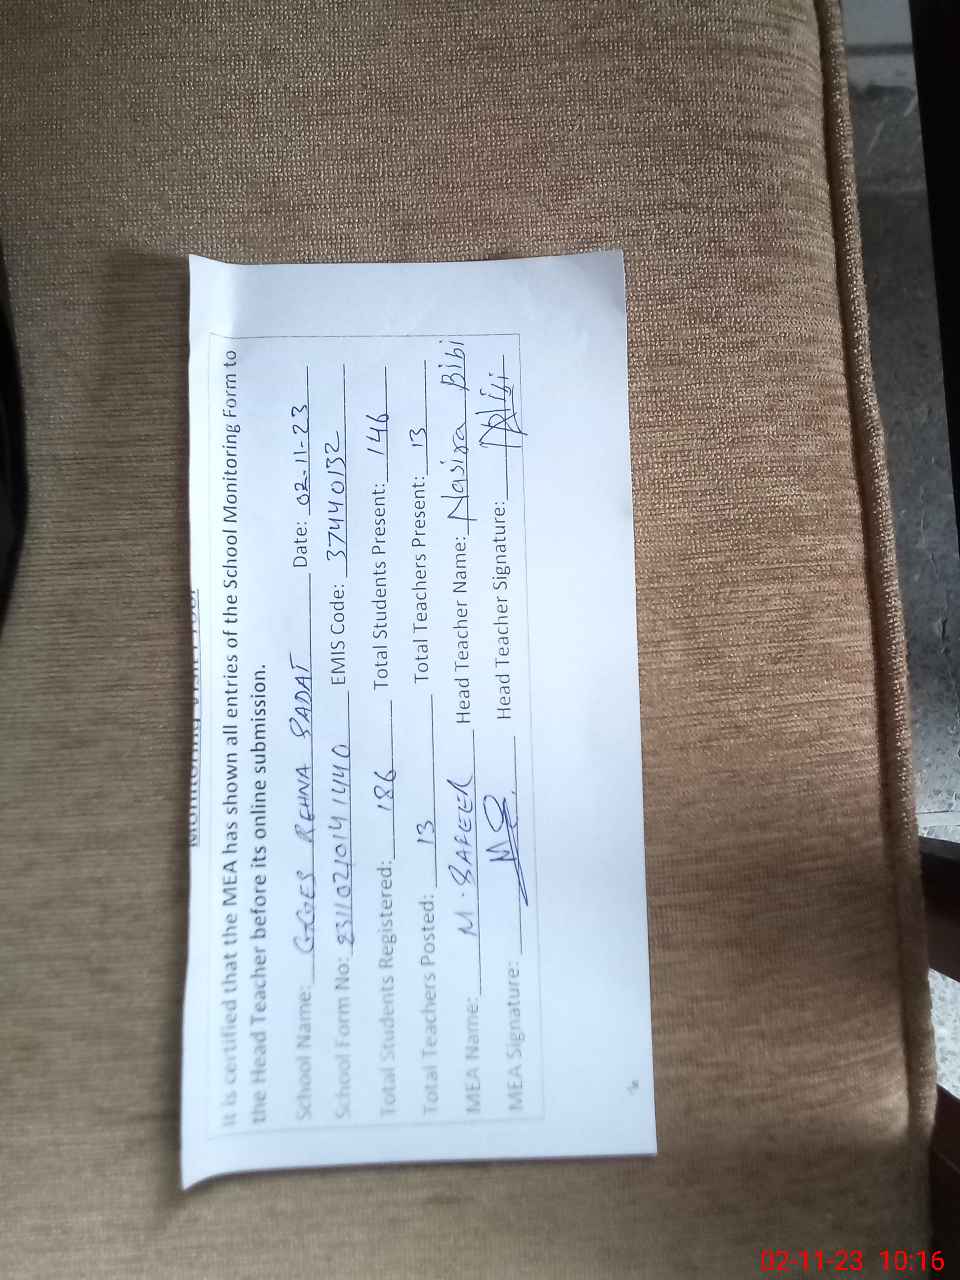 It is certified that the MEA has shown all entries of the School Monitoring Form to
the Head Teacher before its online submission.
School Name: GGES REHNA SADAT Date: 02-11-23
School Form No: 23110210141440 EMIS Code: 37440132
Total Students Registered: 186 Total Students Present: 146
Total Teachers Posted: 13 Total Teachers Present: 13
MEA Name: M. SAFEER Head Teacher Name: Nasira Bibi
MEA Signature: Head Teacher Signature:
02-11-23 10:16